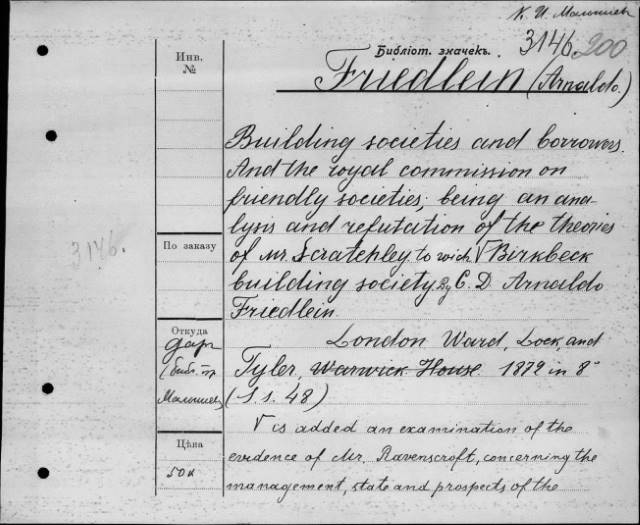 К. И. Малышев
Библіот. значекъ.
3146
200
Инв.
№
Friedlein (Arnaldo.)
Building societies and borrowers.
And the royal commission on
friendly societies; being an ana-
lysis and refutation of the theories
3146.
По заказу
of Mr. Scratchley. to wich √ Birkbeck
building society By C. D. Arnaldo
Friedlein.
Откуда
даръ
London Ward, Lock, and
Tyler, Warwick House. 1872 in 8°
Малышев
(S. s. 48)
√ is added an examination of the
Цѣна
evidence of Mr. Ravenscroft, concerning the
50 к
management, state and prospects of the